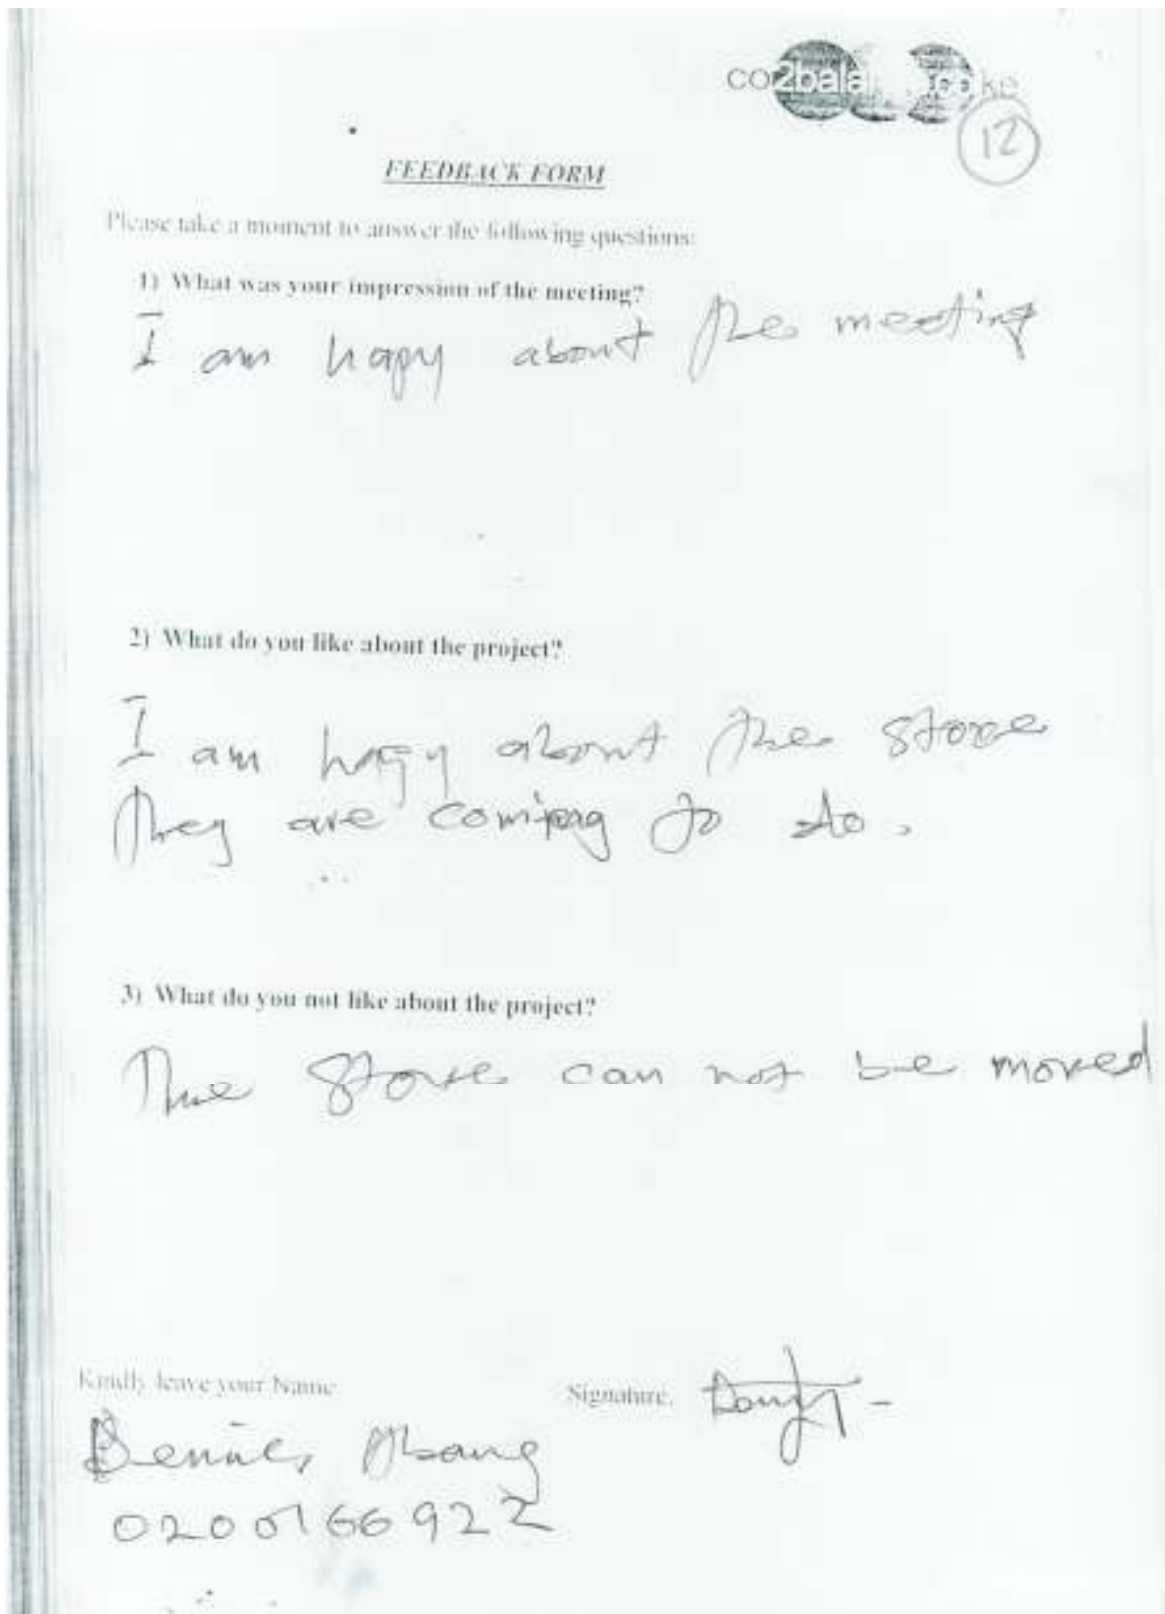 co2bala co ke
12
FEEDBACK FORM
Please take a moment to answer the following questions:
1) What was your impression of the meeting?
I am hapy about the meeting
2) What do you like about the project?
I am happy about the stove
they are coming to do.
3) What do you not like about the project?
The stove can not be moved
Kindly leave your Name
Signature.
Dennis Abang
0200166922